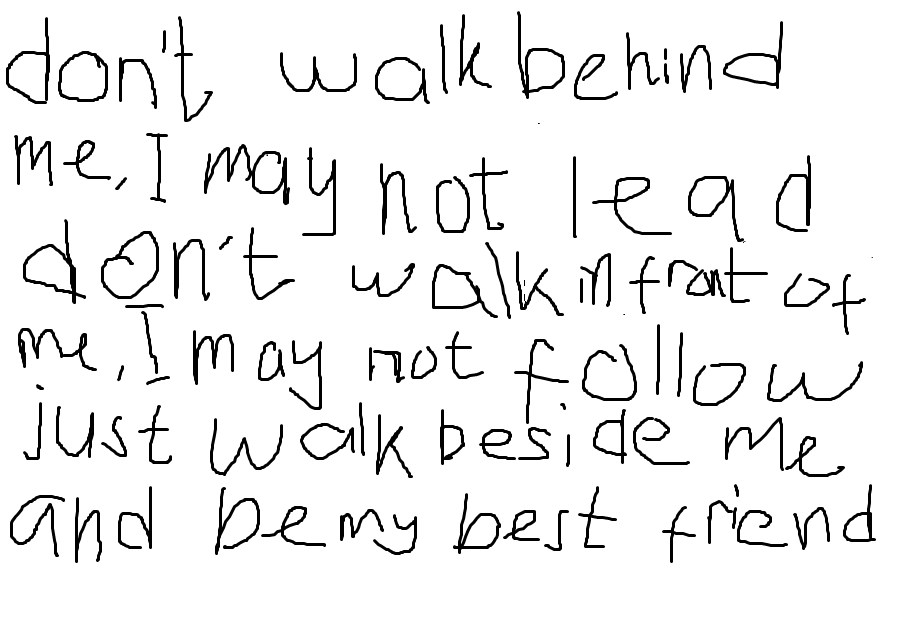 don't walk behind
me, I may not lead
don't walk in front of
me, I may not follow
just walk beside me
and be my best friend